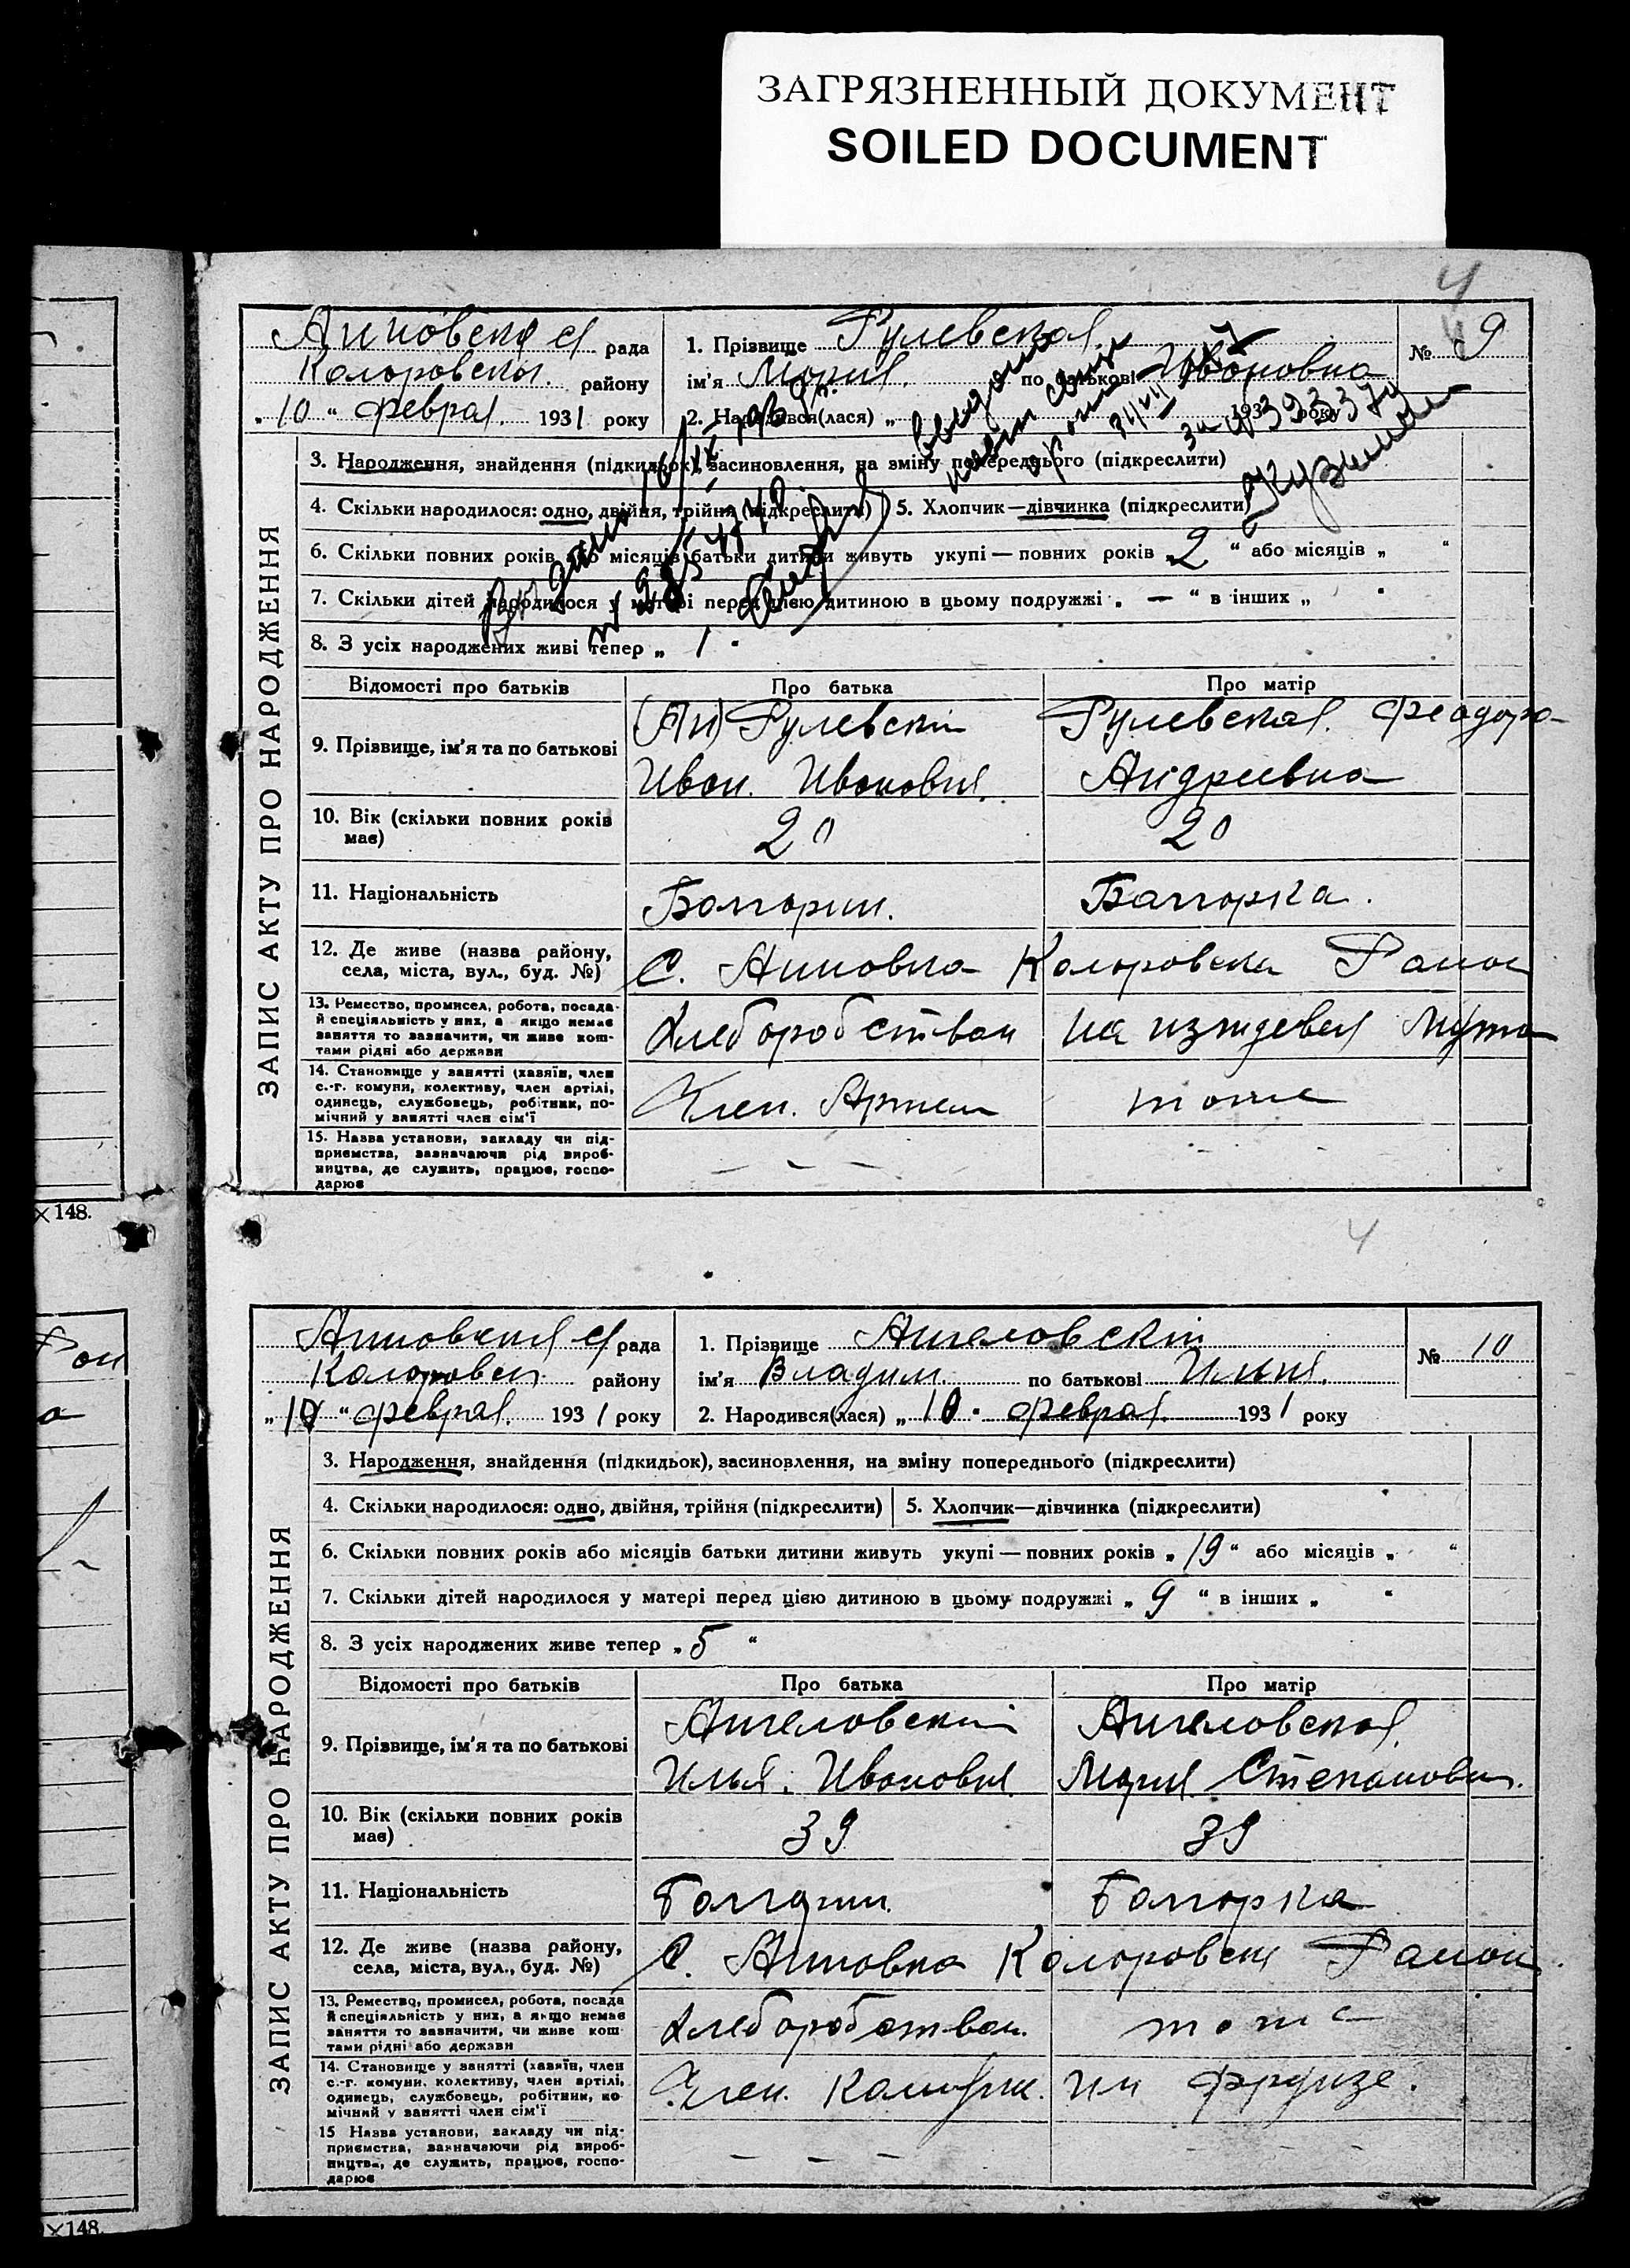 ЗАГРЯЗНЕННЫЙ ДОКУМЕНТ
SOILED DOCUMENT
4
№ 9
Анновская рада
Коларовский району
„10“ феврал. 1931 року
1. Прізвище Гулевская
ім'я Мария по батькові Ивановна
2. Народився(лася) „ 193 року
3. Народження, знайдення (підкидьок), засиновлення, на зміну попереднього (підкреслити)
4. Скільки народилося: одно, двійня, трійня (підкреслити) 5. Хлопчик—дівчинка (підкреслити)
6. Скільки повних років або місяців батьки дитини живуть укупі — повних років „2“ або місяців „ “
7. Скільки дітей народилося у матері перед цією дитиною в цьому подружжі „ — “ в інших „ “
8. З усіх народжених живі тепер „ 1 “
ЗАПИС АКТУ ПРО НАРОДЖЕННЯ
Відомості про батьків Про батька Про матір
9. Прізвище, ім'я та по батькові
Гулевский
Иван Иванович
Гулевская Феодора
Андреевна
10. Вік (скільки повних років
має)
20 20
11. Національність Болгарин. Болгарка.
12. Де живе (назва району,
села, міста, вул., буд. №)
С. Анновка Коларовски Район
13. Ремество, промисел, робота, посада
й спеціяльність у них, а якщо немає
заняття то зазначити, чи живе кош-
тами рідні або держави
на иждевен мужа
14. Становище у занятті (хазяїн, член
с.-г. комуни, колективу, член артілі,
одинець, службовець, робітник, по-
мічний у занятті член сім'ї
Член. Артели тоже
15. Назва установи, закладу чи під-
приємства, зазначаючи рід вироб-
ництва, де служить, працює, госпо-
дарює
– – –
×148.
4
Анновская рада
Коларовски району
„10“ феврал. 1931 року
1. Прізвище Ангеловский
ім'я Владим. по батькові Ильич.
2. Народився(лася) „10“ феврал. 1931 року
№ 10
3. Народження, знайдення (підкидьок), засиновлення, на зміну попереднього (підкреслити)
4. Скільки народилося: одно, двійня, трійня (підкреслити) 5. Хлопчик—дівчинка (підкреслити)
6. Скільки повних років або місяців батьки дитини живуть укупі — повних років „19“ або місяців „ “
7. Скільки дітей народилося у матері перед цією дитиною в цьому подружжі „9“ в інших „ “
8. З усіх народжених живе тепер „5“
ЗАПИС АКТУ ПРО НАРОДЖЕННЯ
Відомості про батьків Про батька Про матір
9. Прізвище, ім'я та по батькові
Ангеловский
Илья Иванович
Ангеловская
Мария Степановн.
10. Вік (скільки повних років
має)
39 39
11. Національність Болгарин. Болгарка
12. Де живе (назва району,
села, міста, вул., буд. №)
С. Анновка Коларовски Район
13. Ремество, промисел, робота, посада
й спеціяльність у них, а якщо немає
заняття то зазначити, чи живе кош
тами рідні або держави
тоже
14. Становище у занятті (хазяїн, член
с.-г. комуни. колективу, член артілі,
одинець, службовець, робітник, по
мічний у занятті член сім'ї
Член. Комуни. им Фрунзе.
15 Назва установи, закладу чи під-
приємства, зазначаючи рід вироб-
ництва, де служить, працює, госпо-
дарює
– – –
×148.